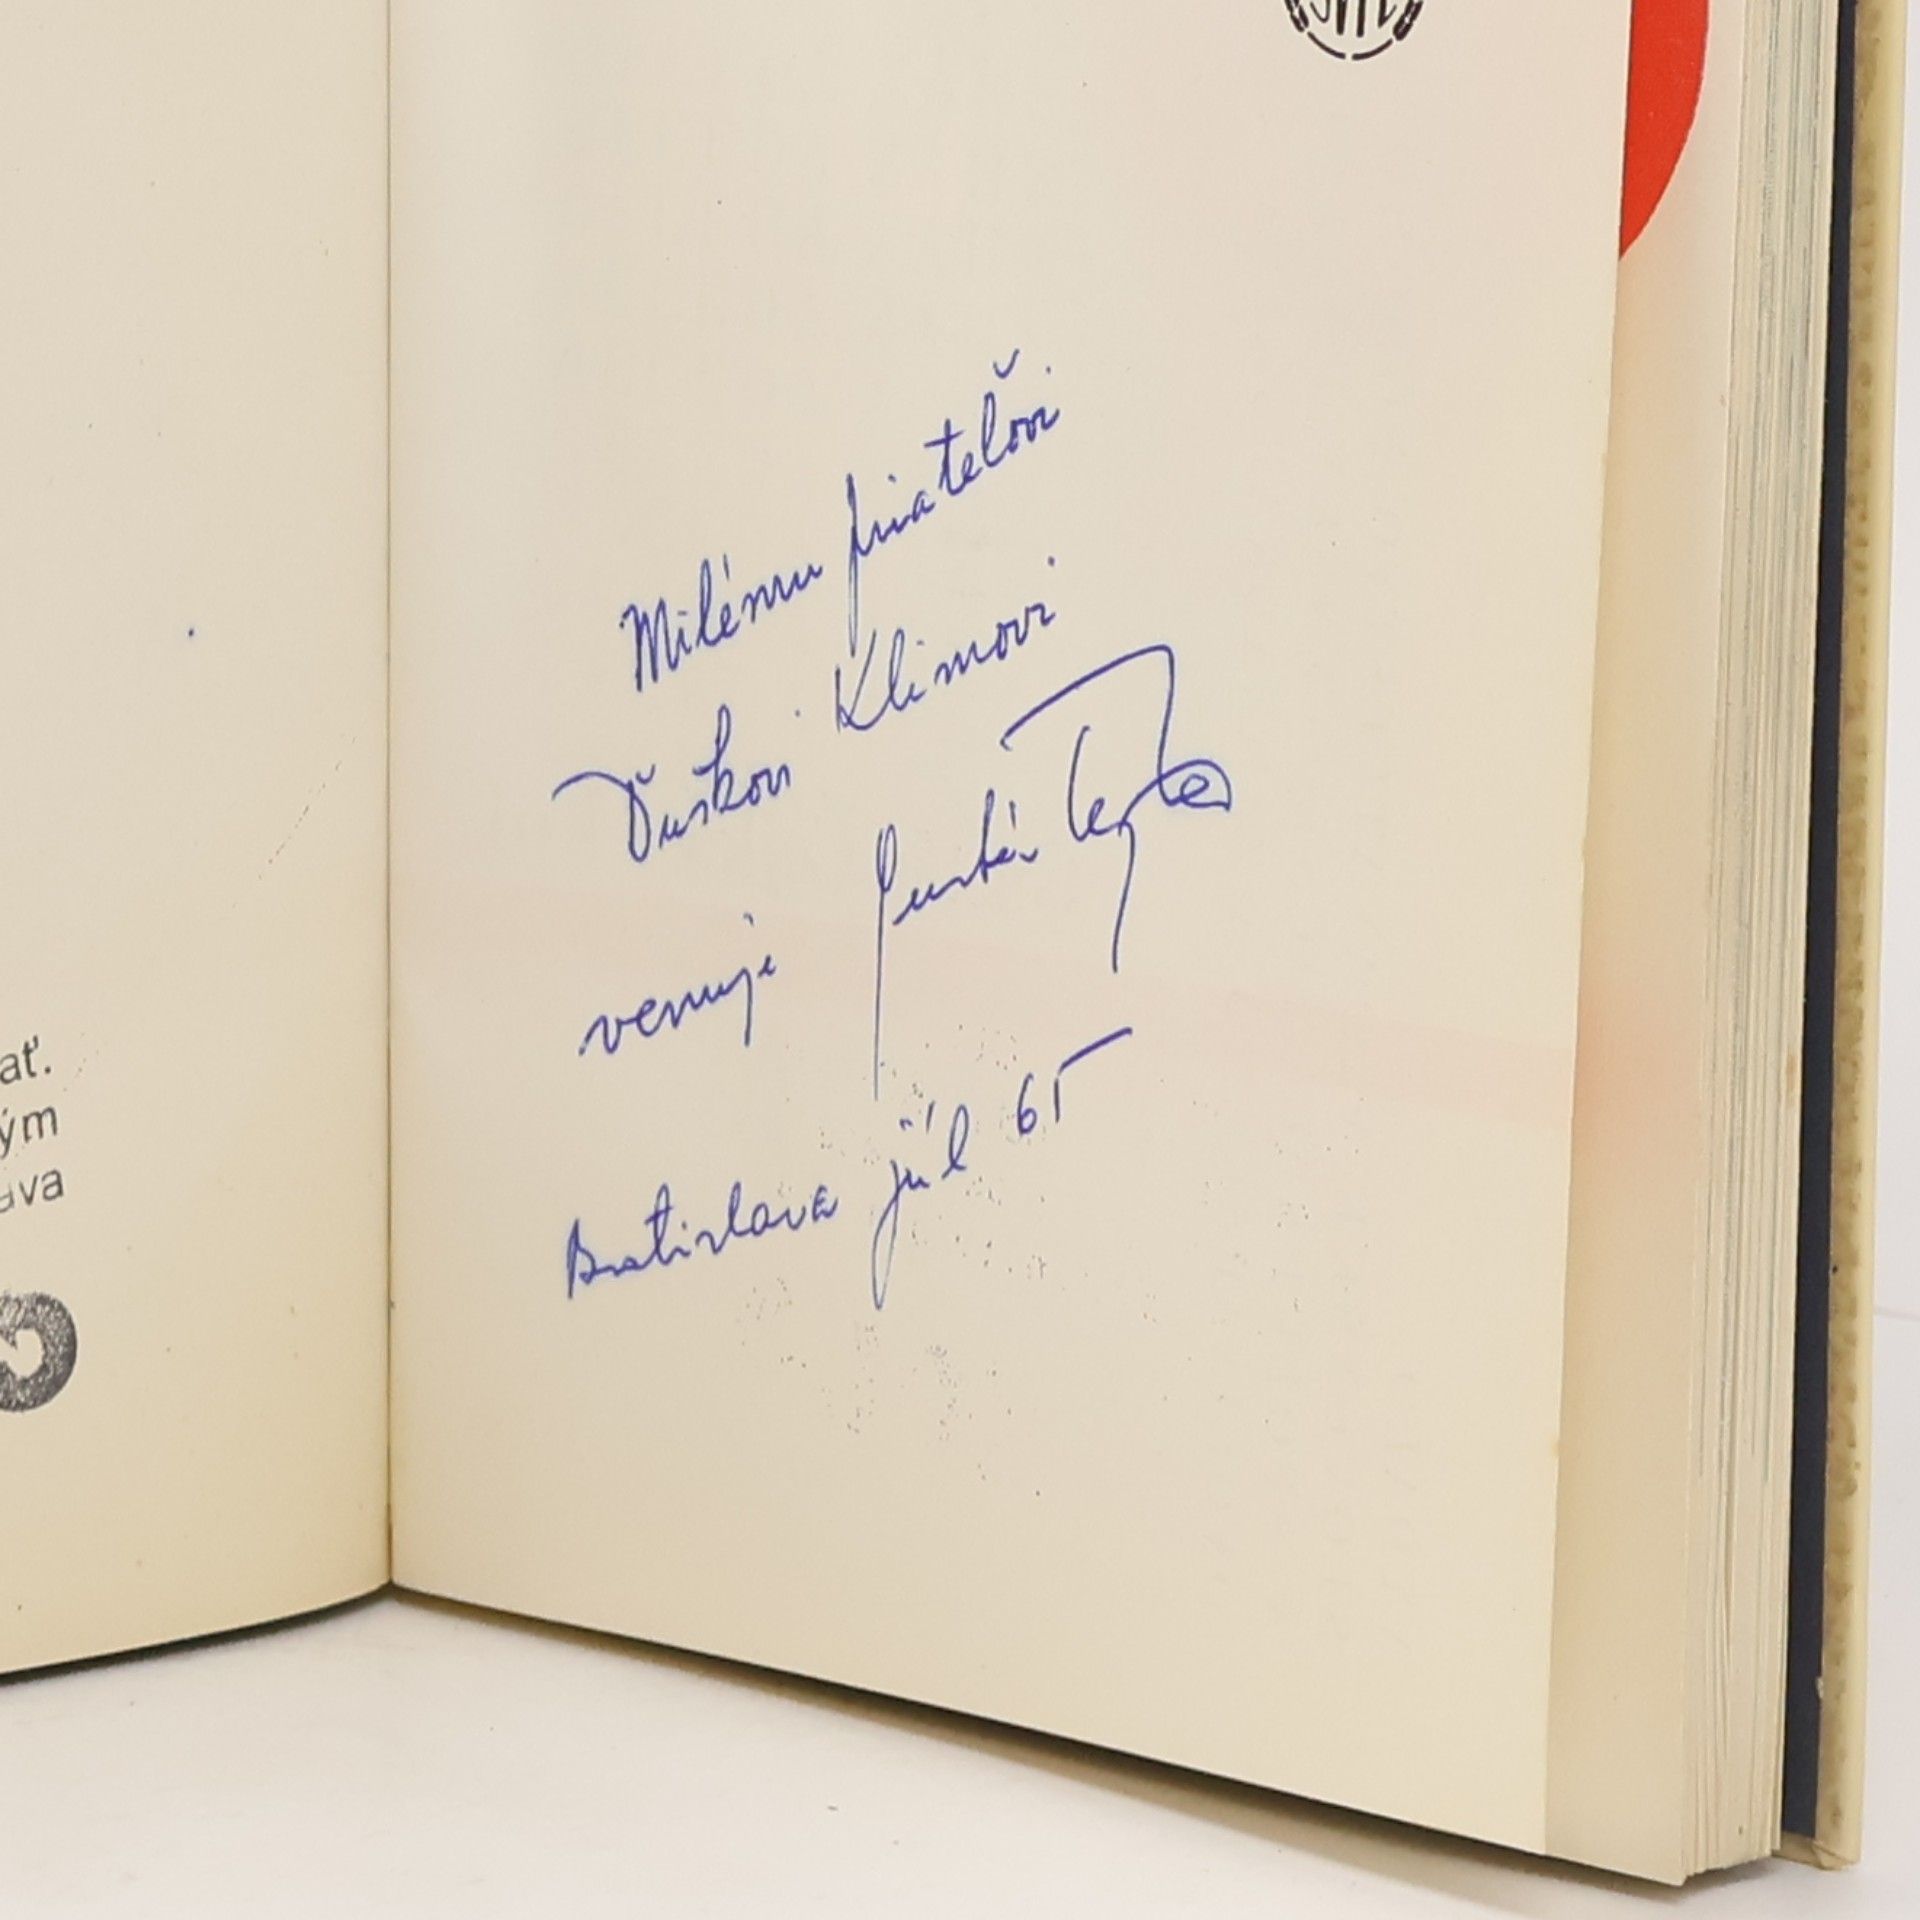 ať.
ým
ava
Milému priateľovi
Ďuškovi Klimovi
venuje Gustáv
Bratislava júl 65